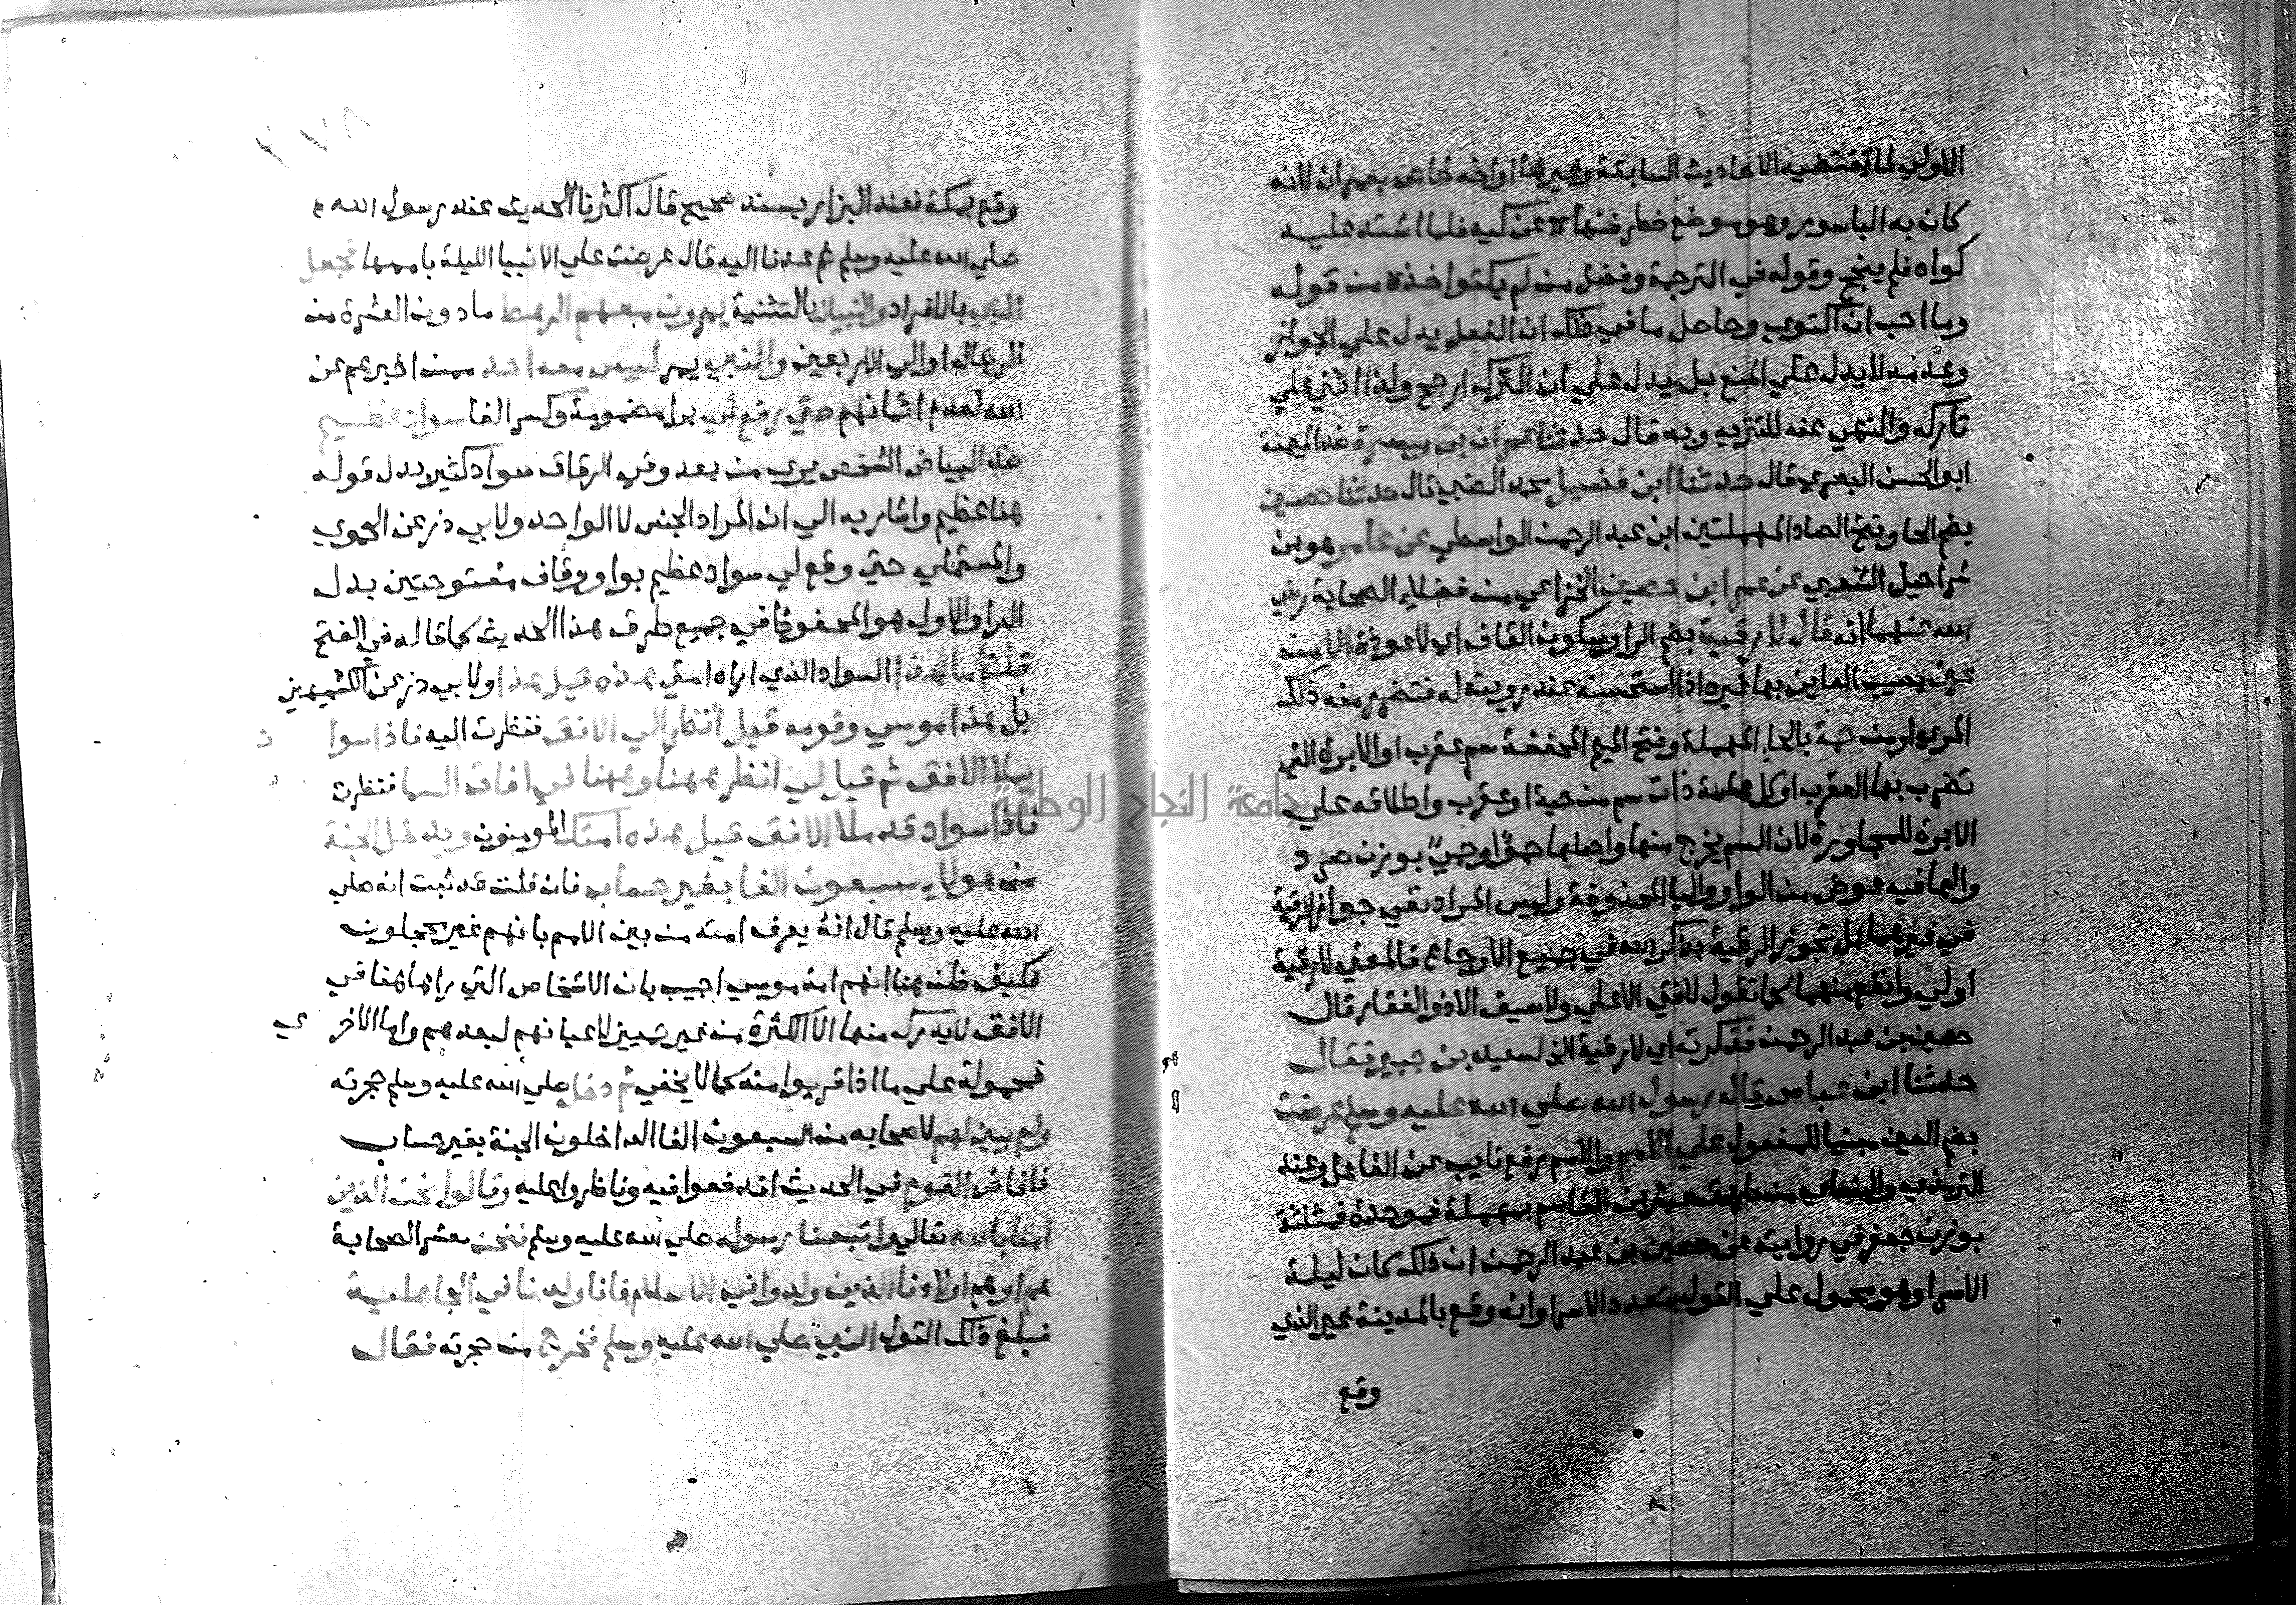 الاولي لما تقتضيه الاحاديث السابقة وغيرها او انه خاص بعمران لانه
كان به الباسور وهو موضع خطر فنهاه عن كيه فلما اشتد عليه
كواه فلم ينجح وقوله في الترجمة وفضل من لم يكتو اخذه من قوله
وما احب ان اكتوي وحاصل ما في ذلك ان الفعل يدل علي الجواز
وعدمه لا يدل علي المنع بل يدل علي ان الترك ارجح ولذا اثني علي
تاركه والنهي عنه للتنزيه وبه قال حدثنا عمران بن ميسرة ضد الميمنة
ابو الحسن البصري قال حدثنا ابن فضيل محمد الضبي قال حدثنا حصين
بضم الحا وفتح الصاد المهملتين ابن عبد الرحمن الواسطي عن عامر هو بن
شراحيل الشعبي عن عمران بن حصين الخزاعي من فضلاء الصحابة رضي
الله عنهما انه قال لا رقية بضم الرا وسكون القاف اي لا عوذة الا من
عين يصيب العاين بها غيره اذا استحسنه عند رويته له فتضرر منه ذلك
المريي او من حمة بالحاء المهملة وفتح الميم المخففة سم عقرب او الابرة التي
تضرب بها العقرب او كل ذات سم من حية او عقرب واطلاقه علي
الابرة للمجاورة لان السم يخرج منها واصلها حمو او حمي بوزن صرد
والها فيه عوض من الواو واليا المحذوفة وليس المراد نفي جواز الرقية
في غيرهما بل تجوز الرقية بذكر الله في جميع الاوجاع فالمعني لا رقية
اولي وانفع منهما كما تقول لا فتي الا علي ولا سيف الا ذو الفقار قال
حصين بن عبد الرحمن فذكرته اي لا رقية الخ لسعيد بن جبير فقال
حدثنا ابن عباس قال رسول الله صلي الله عليه وسلم عرضت
بضم العين مبنيا للمفعول علي الامم والامم رفع نايب عن الفاعل وعند
الترمذي والنساي من طريق عبثر بن القاسم بمهملة فموحدة فمثلثة
بوزن جعفر في روايته عن حصين بن عبد الرحمن ان ذلك كان ليلة
الاسرا وهو محمول علي القول بتعدد الاسرا وانه وقع بالمدينة غير الذي
وقع
٨٧٢
وقع بمكة فعند البزار بسند صحيح قال اكثرنا الحديث عند رسول الله
صلي الله عليه وسلم ثم عدنا اليه قال عرضت علي الانبيا الليلة باممها فجعل
النبي بالافراد والنبيان بالتثنية يمرون معهم الرهط ما دون العشرة من
الرجال او الي الاربعين والنبي يمر ليس معه احد ممن اخبرهم عن
الله لعدم ايمانهم حتي رفع لي برا مضمومة وكسر الفا سواد عظيم
ضد البياض الشخص يري من بعد وفي الرقاق سواد كثير بدل قوله
هنا عظيم واشار به الي ان المراد الجنس لا الواحد ولابي ذر عن الحموي
والمستملي حتي وقع لي سواد عظيم بواو وقاف مفتوحتين بدل
الرا والاول هو المحفوظ في جميع طرق هذا الحديث كما قاله في الفتح
قلت ما هذا السواد الذي اراه امتي هذه قيل هذا ولابي ذر عن الكشميهني
بل هذا موسي وقومه قيل انظر الي الافق فنظرت اليه فاذا سوا د
يملا الافق ثم قيل لي انظر ههنا وههنا في افاق السما فنظرت
فاذا سواد قد ملا الافق قيل هذه امتك المومنون ويدخل الجنة
من هولاء سبعون الفا بغير حساب فان قلت قد ثبت انه صلي
الله عليه وسلم قال انه يعرف امته من بين الامم بانهم غير محجلون
فكيف ظن هنا انهم امة موسي اجيب بان الاشخاص التي راها هنا في
الافق لا يدرك منها الا الكثرة من غير تمييز لاعيانهم لبعدهم واما الاخر ي
فمحمولة علي ما اذا قربوا منه كما لا يخفي ثم دخل صلي الله عليه وسلم حجرته
ولم يبين لهم لاصحابه من السبعون الفا الداخلون الجنة بغير حساب
فافاض القوم في الحديث اندفعوا فيه وناظروا عليه وقالوا نحن الذين
امنا بالله تعالي واتبعنا رسوله صلي الله عليه وسلم فنحن معشر الصحابة
هم او هم اولادنا الذين ولدوا في الاسلام فانا ولدنا في الجاهلية
فبلغ ذلك القول النبي صلي الله عليه وسلم فخرج من حجرته فقال
جامعة النجاح الوطنية